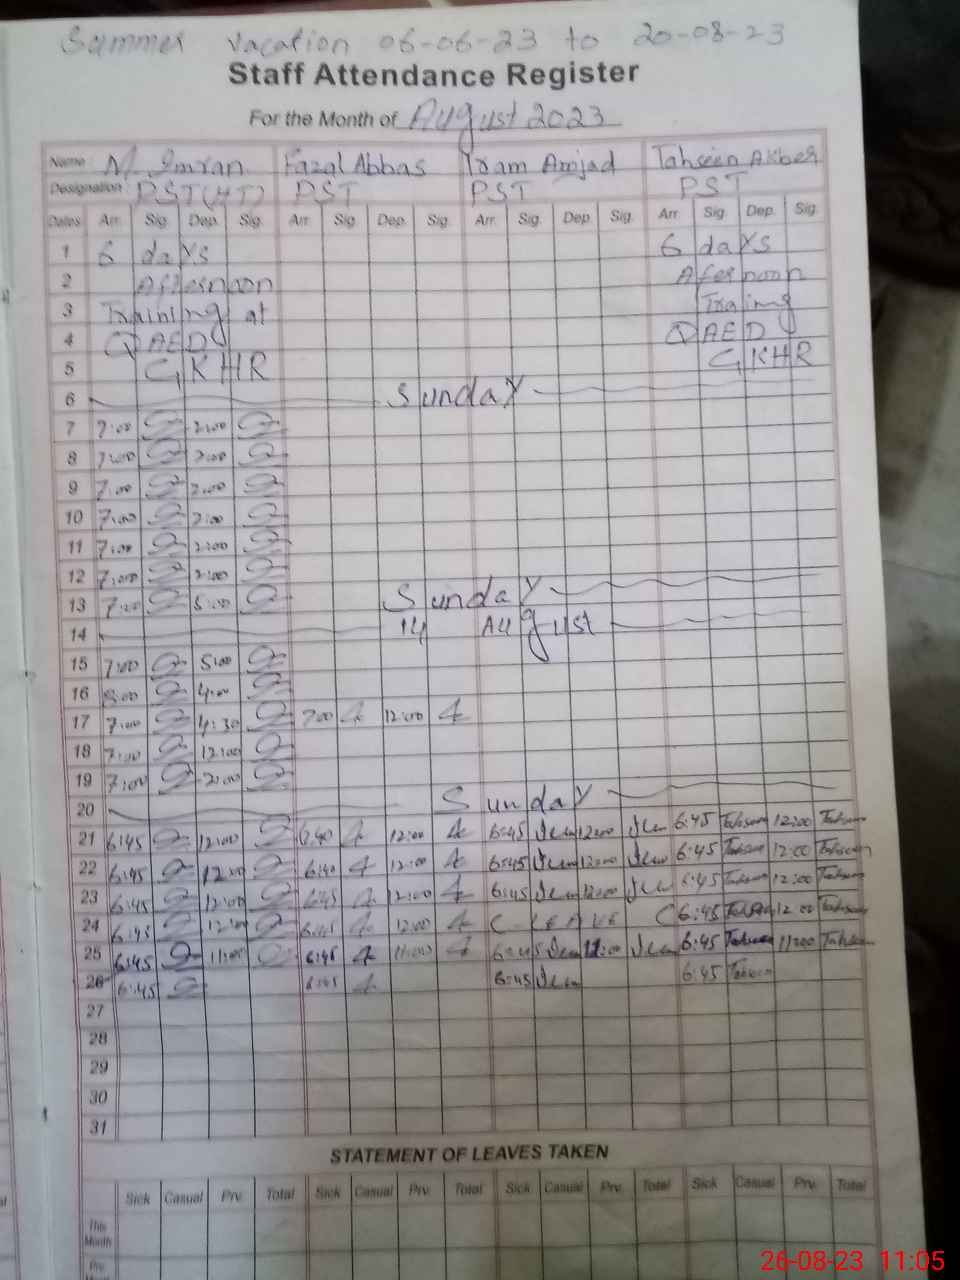 Summer vacation 06-06-23 to 20-08-23
Staff Attendance Register
For the Month of August 2023
Name M. Imran Fazal Abbas Iram Amjad Tahseen Akber
Designation PST (HT) PST PST PST
Dates Arr. Sig. Dep. Sig. Arr. Sig. Dep. Sig. Arr. Sig. Dep. Sig. Arr. Sig. Dep. Sig.
1 6 days 6 days
2 Afternoon Afernoon
3 Training at Traing
4 QAED QAED
5 GKHR GKHR
6 Sunday
7 7:00 2:00
8 7:00 2:00
9 7:00 2:00
10 7:00 2:00
11 7:00 2:00
12 7:00 2:00
13 7:00 5:00 Sunday
14 14 August
15 7:00 5:00
16 8:00 4:00
17 7:00 4:30 7:00 12:00
18 7:00 12:00
19 7:00 2:00
20 Sunday
21 6:45 12:00 6:40 12:00 6:45 12:00 6:45 Tahseen 12:00 Tahseen
22 6:45 12:00 6:40 12:00 6:45 12:00 6:45 Tahseen 12:00 Tahseen
23 6:45 12:00 6:45 12:00 6:45 12:00 6:45 Tahseen 12:00 Tahseen
24 6:45 12:00 6:45 12:00 C LEAVE 6:45 Tahseen 12:00 Tahseen
25 6:45 11:00 6:45 11:00 6:45 11:00 6:45 Tahseen 11:00 Tahseen
26 6:45 6:45 6:45 6:45 Tahseen
27
28
29
30
31
STATEMENT OF LEAVES TAKEN
Sick Casual Prv. Total Sick Casual Prv. Total Sick Casual Prv. Total Sick Casual Prv. Total
This
Month
Prv.
26-08-23 11:05